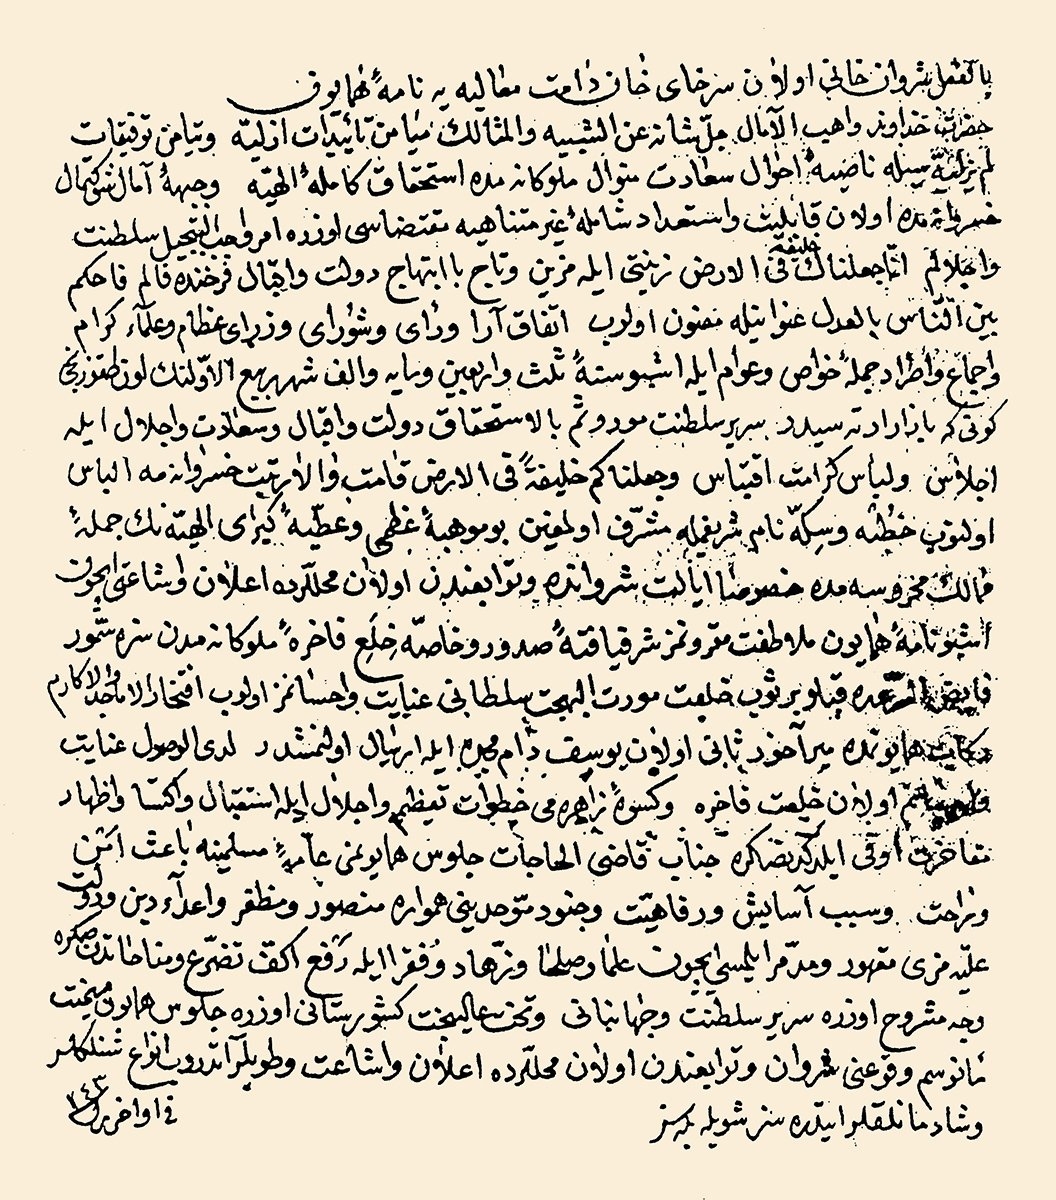 بالفعل شروان خانی اولان سرخای خان دامت معالیه یه نامهٔ همایون
حضرت خداوند واهب الآمال جلّ شانه عن الشبیه والمثالك میامن تائیدات ازلیه وتیامن توفیقات
لم یزلیه سیله ناصیهٔ احوال سعادت منوال ملوكانه مده استحقاق كاملهٔ الهیه وجبههٔ آمال
خسروانه مده اولان قابلیت واستعداد شاملهٔ غیر متناهیه مقتضاسی اوزره امر واجب التبجیل سلطنت
انا جعلناك خلیفة فی الارض زینتی ایله مزین وتاج با ابتهاج دولت واقبال فرخنده فالم فاحكم
بین الناس بالعدل عنوانیله معنون اولوب اتفاق آرا ورای وشورای وزرای عظام وعلمآء كرام
واجماع وافراد جملهٔ خواص وعوام ایله اشبو سنهٔ ثلث واربعین ومایه والف شهر ربیع الاولنك اون طقوزنجی
كونی كه بازار ارته سیدر سریر سلطنت موروثم بالاستحقاق دولت واقبال وسعادت واجلال ایله
اجلاس ولباس كرامت اقتباس وجعلناكم خلیفةً فی الارض قامت والارتبت خسروانه مه الباس
اولنوب خطبه وسكه نام شریفمله مشرّف اولمغین بو موهبهٔ عظمی وعطیهٔ كبرای الهیه نك جملهٔ
ممالك محروسه مده خصوصا ایالت شروانده وتوابعندن اولان محللرده اعلان واشاعتی ایچون
اشبو نامهٔ همایون ملاطفت مقرونمز شرفیافتهٔ صدور وخاصه خلع فاخرهٔ ملوكانه مدن سزه سمّور
قپلو بر ثوب خلعت مورث البهجت سلطانی عنایت واحسانمز اولوب افتخار الاماجد والاكارم
ركاب همایونمده میرآخور ثانی اولان یوسف دام مجده ایله ارسال اولنمشدر لدی الوصول عنایت
اولان خلعت فاخره وكسوهٔ زاهره می خطوات تعظیم واجلال ایله استقبال واكتسا واظهار
مفاخرت ایلدكدنصكره جناب قاضی الحاجات جلوس همایونمی عامهٔ مسلمینه باعث امن
وراحت وسبب آسایش ورفاهیت وجنود موحدینی همواره منصور ومظفر واعدآء دین ودولت
علیه مزی مقهور ومدمّر ایلمسیچون علما وصلحا وزهاد وفقرا ایله رفع اكفّ تضرّع ومناجاتدن صكره
وجه مشروح اوزره سریر سلطنت وجهانبانی وتخت عالیبخت كشورستانی اوزره جلوس همایون میمنت
مانوسم وقوعنی شروان وتوابعندن اولان محللرده اعلان واشاعت وطوپلر آتدروب انواع شنلكلر
وشادمانلقلر ایتدره سز شویله بیله سز فی اواخر را ١٤٣